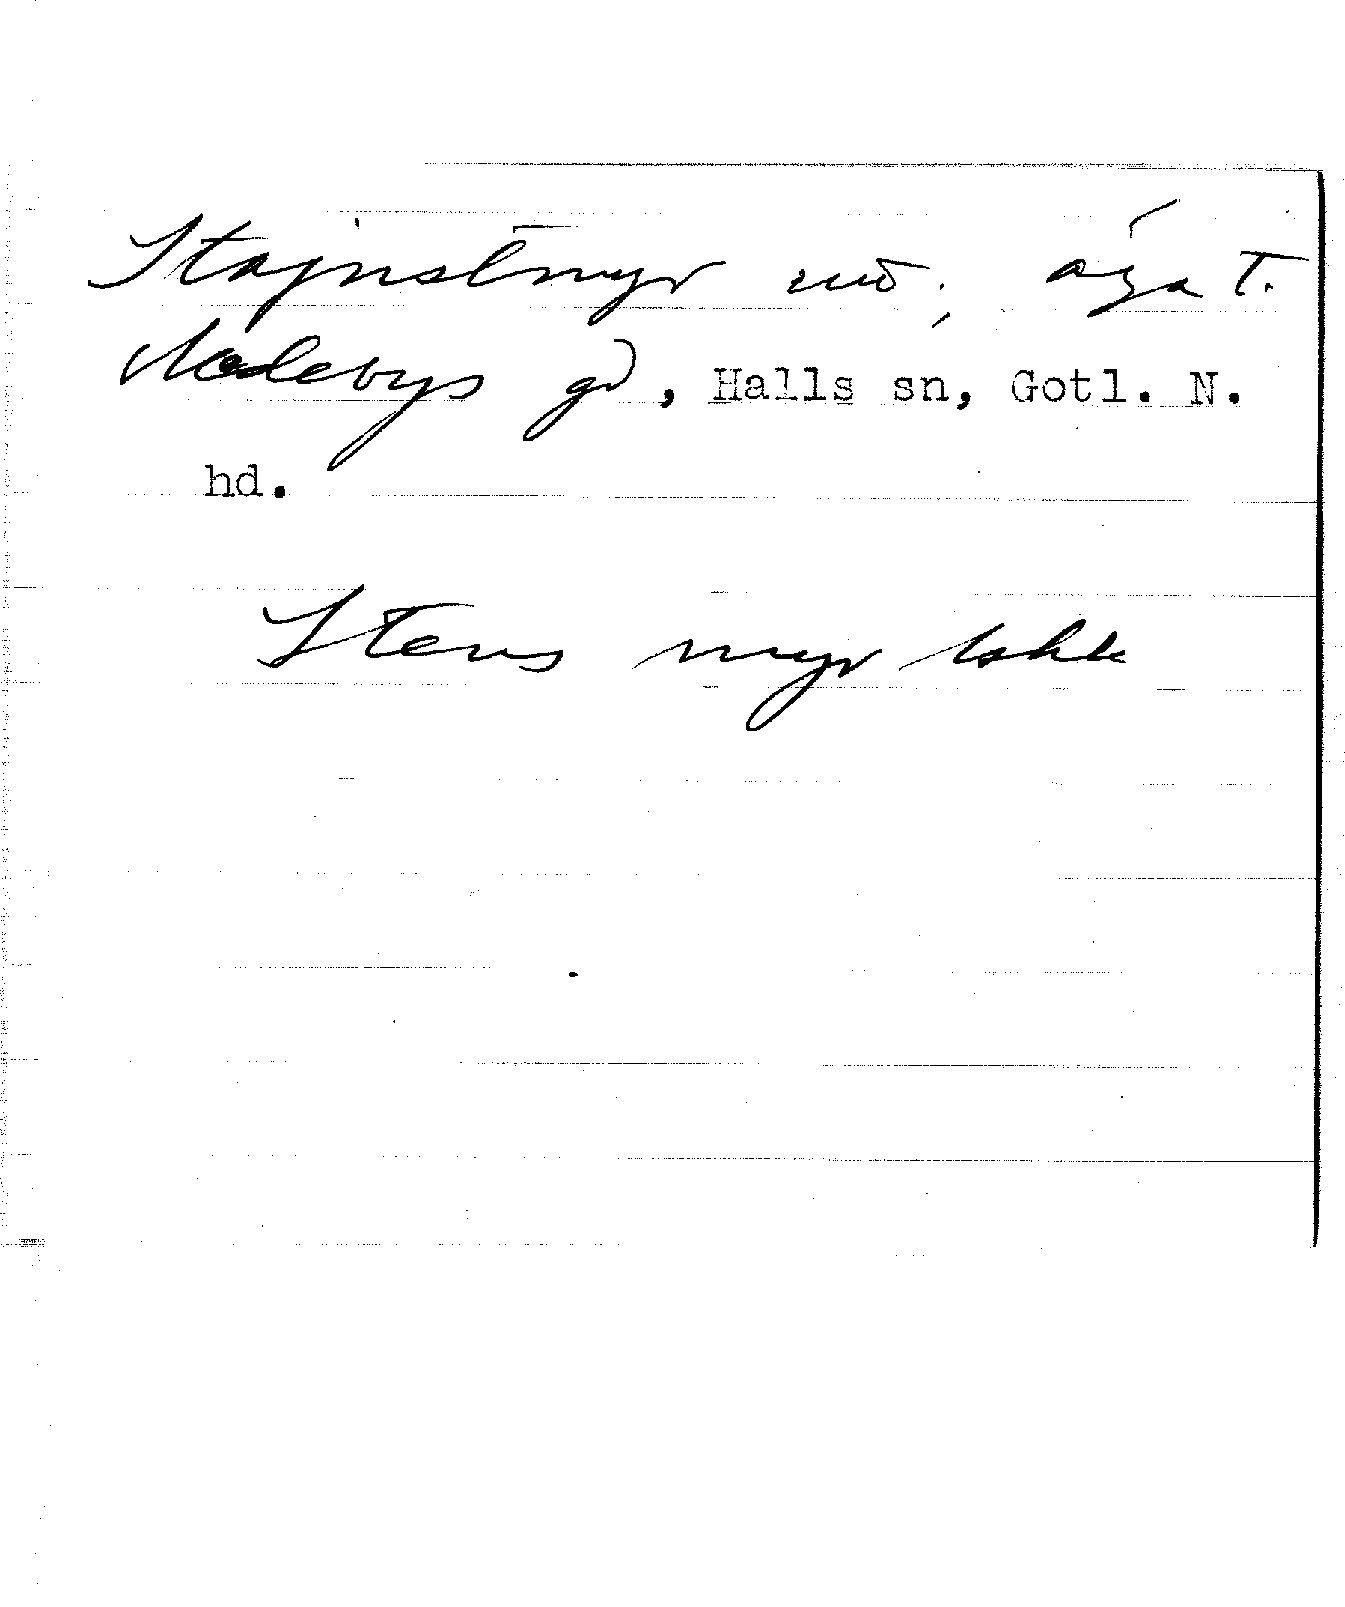 Stajnstmyr uö; äga t.
Nedebys gd, Halls sn, Gotl. N.
hd.
Stens myr